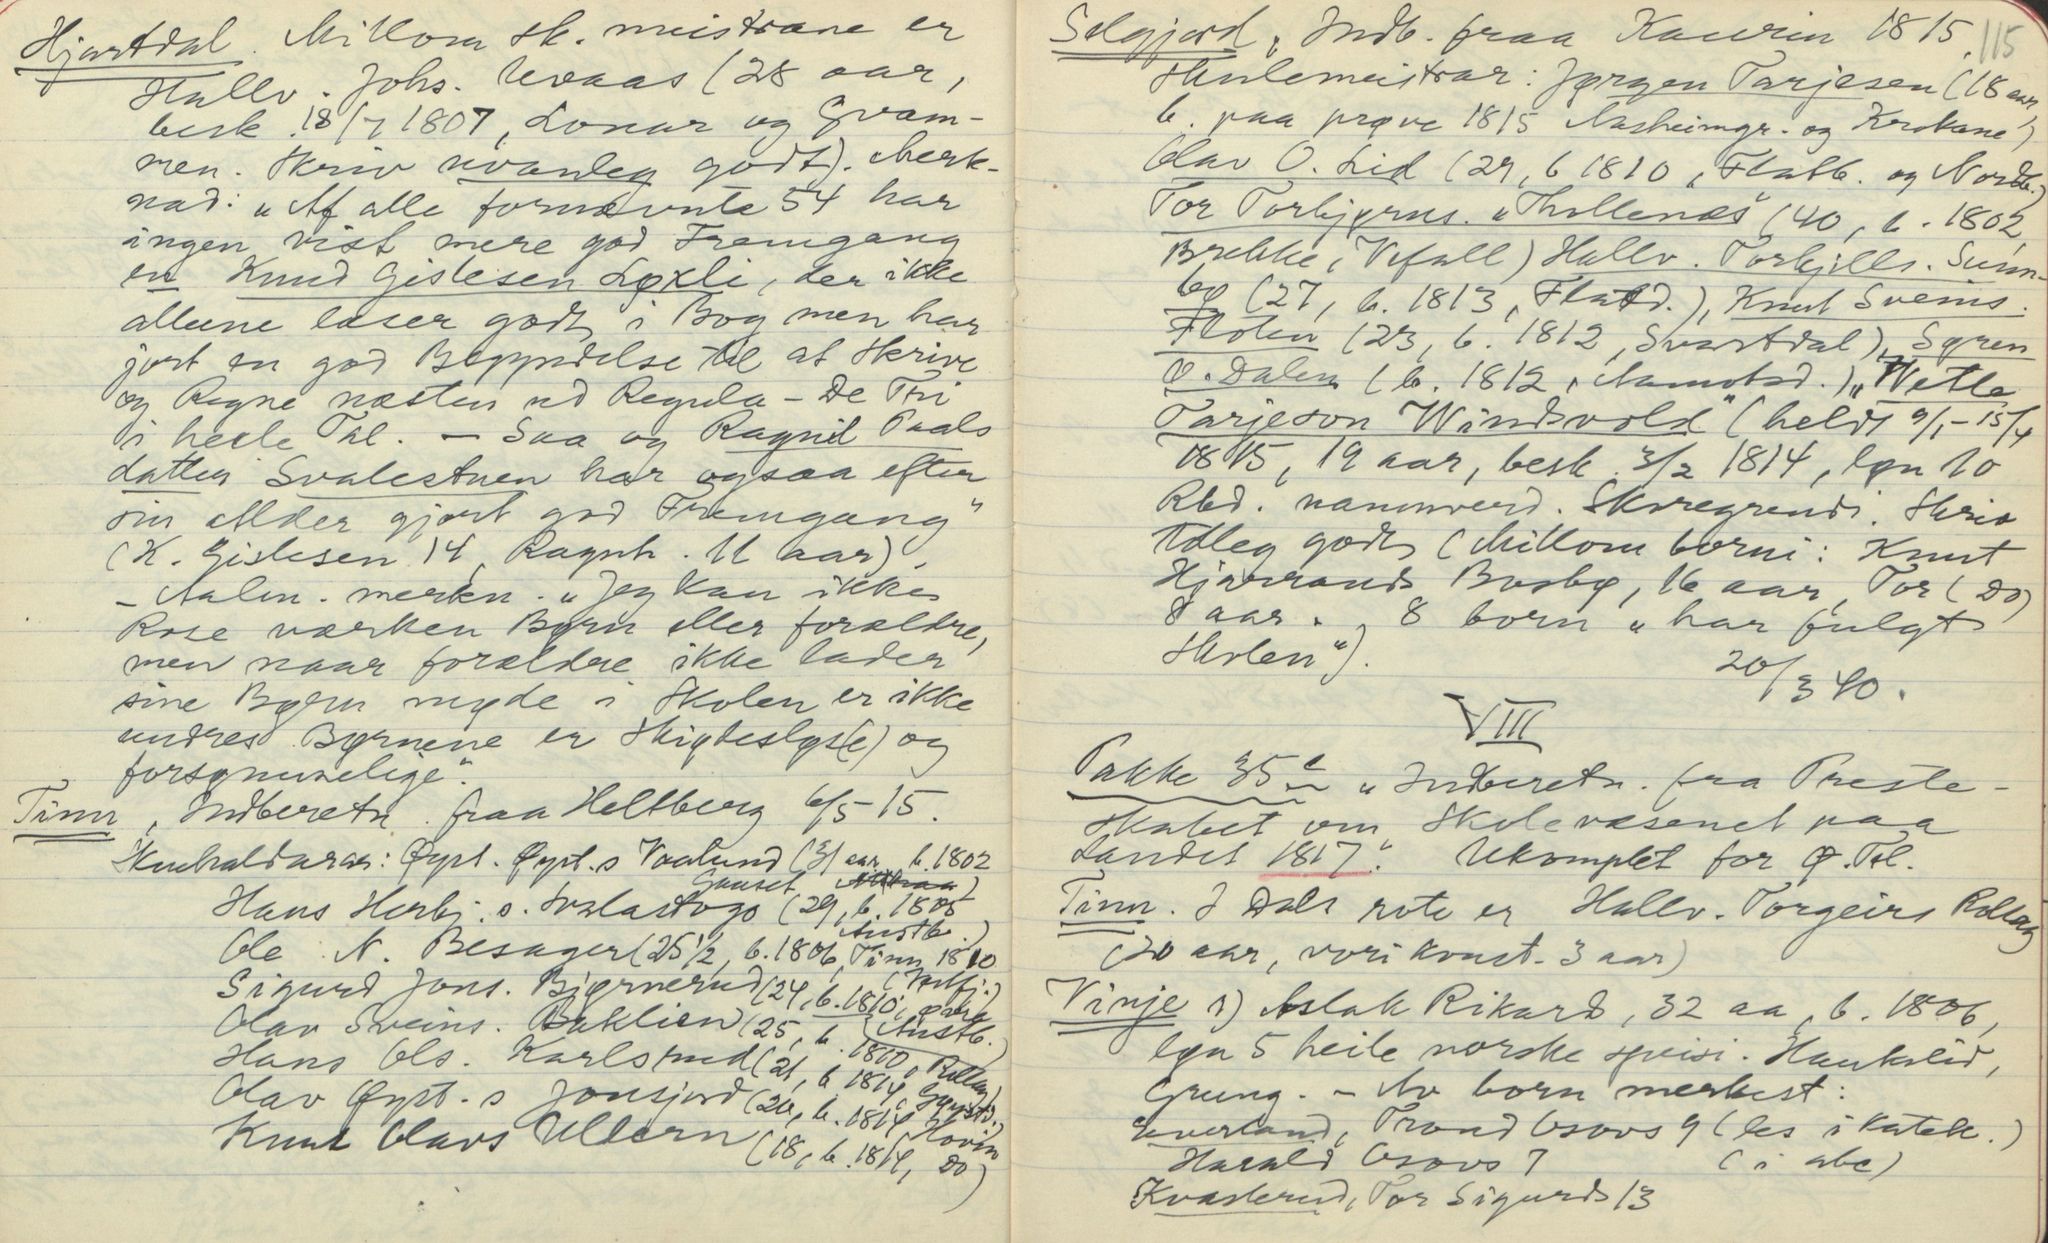 Hjartdal. Millom sk. meistrane er
Hallv. Johs. Uvaas (28 aar,
besk. 18/7 1807, Lonar og Gvam-
men. Skriv uvanleg godt). Merk-
nad: „Af alle fornævnte 54 har
ingen vist mere god Fremgang
en Knud Gislesen Løkli, der ikke
alleene læser godt i Bog men har
jort en god Begyndelse til at Skrive
og Regne næsten ud Regula-De Tri
i heele Tal. — Saa og Ragnil Paals
datter Svalestuen har ogsaa efter
sin Alder gjort god Fremgang"
(K. Gislesen 14, Ragnh. 11 aar).
- Aalm. merkn. „Jeg kan ikke
Rose værken Børn eller forældre,
men naar forældre ikke lader
sine Børn nyde i Skolen er ikke
undres Børnene er Skiødesløs(e) og
forsømmelige".
Tinn, Indberetn. fraa Heltberg 6/5-15.
Skulehaldarar: Øyst. Øyst.s Vaalund (31 aar, b. 1802
Gauset
Hans Herbj.s. (29, b. 1805
Austb.)
Ole N. Besager (25½, b. 1806, Tinn 1810
(Vestfj.)
Sigurd Jons. Bjørnerud (24, b. 1810,
Olav Sveins. Baklien (25, b. 1810, Austb.)
Hans Ols. Karlsrud (21, b. 1814,
Olav Øyst.s Jonsjord (20, b. 1814,
Knut Olavs Ullern (18, b. 1814, Do)
115
Selgjord, Indb. fraa Kaurin 1815.
Skulemeistrar: Jørgen Tarjesen (18 aar,
b. paa prøve 1815 Aasheimgr. og Krokane)
Olav O. Lid (29, b 1810, Flatb. og Nordb.)
Tor Torbjørns. „Thollenæs" (40, b. 1802,
Brekke, Vefall) Hallv. Torkjills. Sunn-
bø (27, b. 1813, Flatd.), Knut Sveins.
Floten (23, b. 1812, Svartdal), Søren
O. Dalen (b. 1812, Aamotsd.) „Wetle
Tarjeson Windsvold" (heldt 9/1-15/4
1815, 19 aar, besk. 3/2 1814, løn 10
Rbd. namnverd. Skoregrendi. Skriv
tolleg godt (Millom borni: Knut
Hjarrands Bosbø, 16 aar, Tor (Do)
8 aar. 8 born „har fulgt
Skolen").
20/3 40.
VIII
Pakke 35 „Indberetn. fra Preste-
skabet om Skolevæsenet paa
Landet 1817." Ukomplet for Ø. Tel.
Tinn. I Dals rote er Hallv. Torgeirs Rollag
(20 aar, vori konst. 3 aar)
Vinje 1) Aslak Rikard, 32 aa, b. 1806,
løn 5 heile norske speisi. Haukelid,
Grung. - Av born merkest:
Trond 9 (les i katek.)
Harald 7 (i abc)
Kvasterud, Tor Sigurds 13